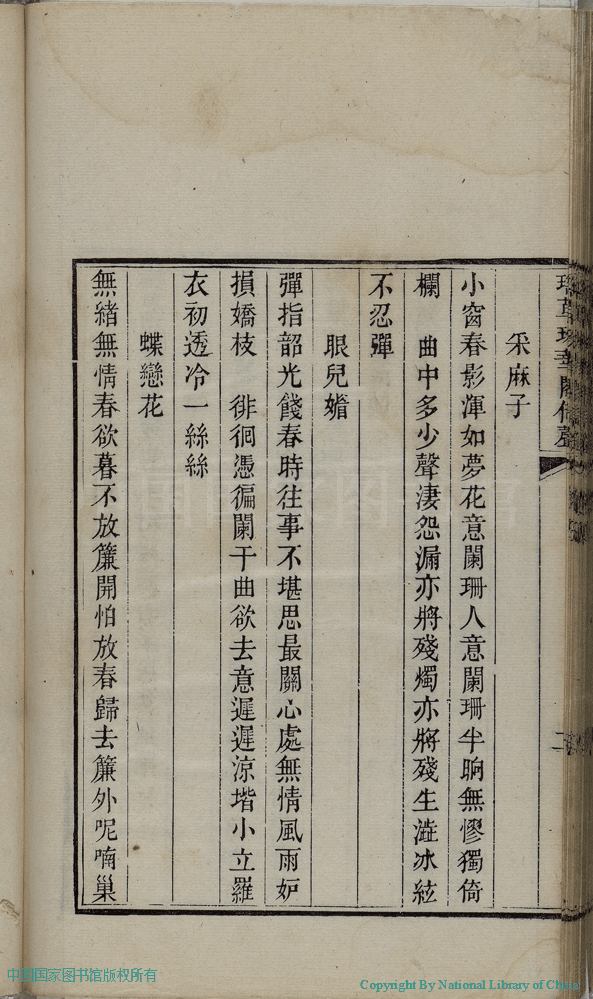 采麻子
小窗春影渾如夢花意闌珊人意闌珊半晌無憀獨倚
欄　曲中多少聲淒怨漏亦將殘燭亦將殘生澁冰絃
不忍彈
眼兒媚
彈指韶光餞春時往事不堪思最關心處無情風雨妒
損嬌枝　徘徊憑徧闌干曲欲去意遲遲涼堦小立羅
衣初透冷一絲絲
蝶戀花
無緒無情春欲暮不放簾開怕放春歸去簾外呢喃巢
中国国家图书馆版权所有
Copyright By National Library of China